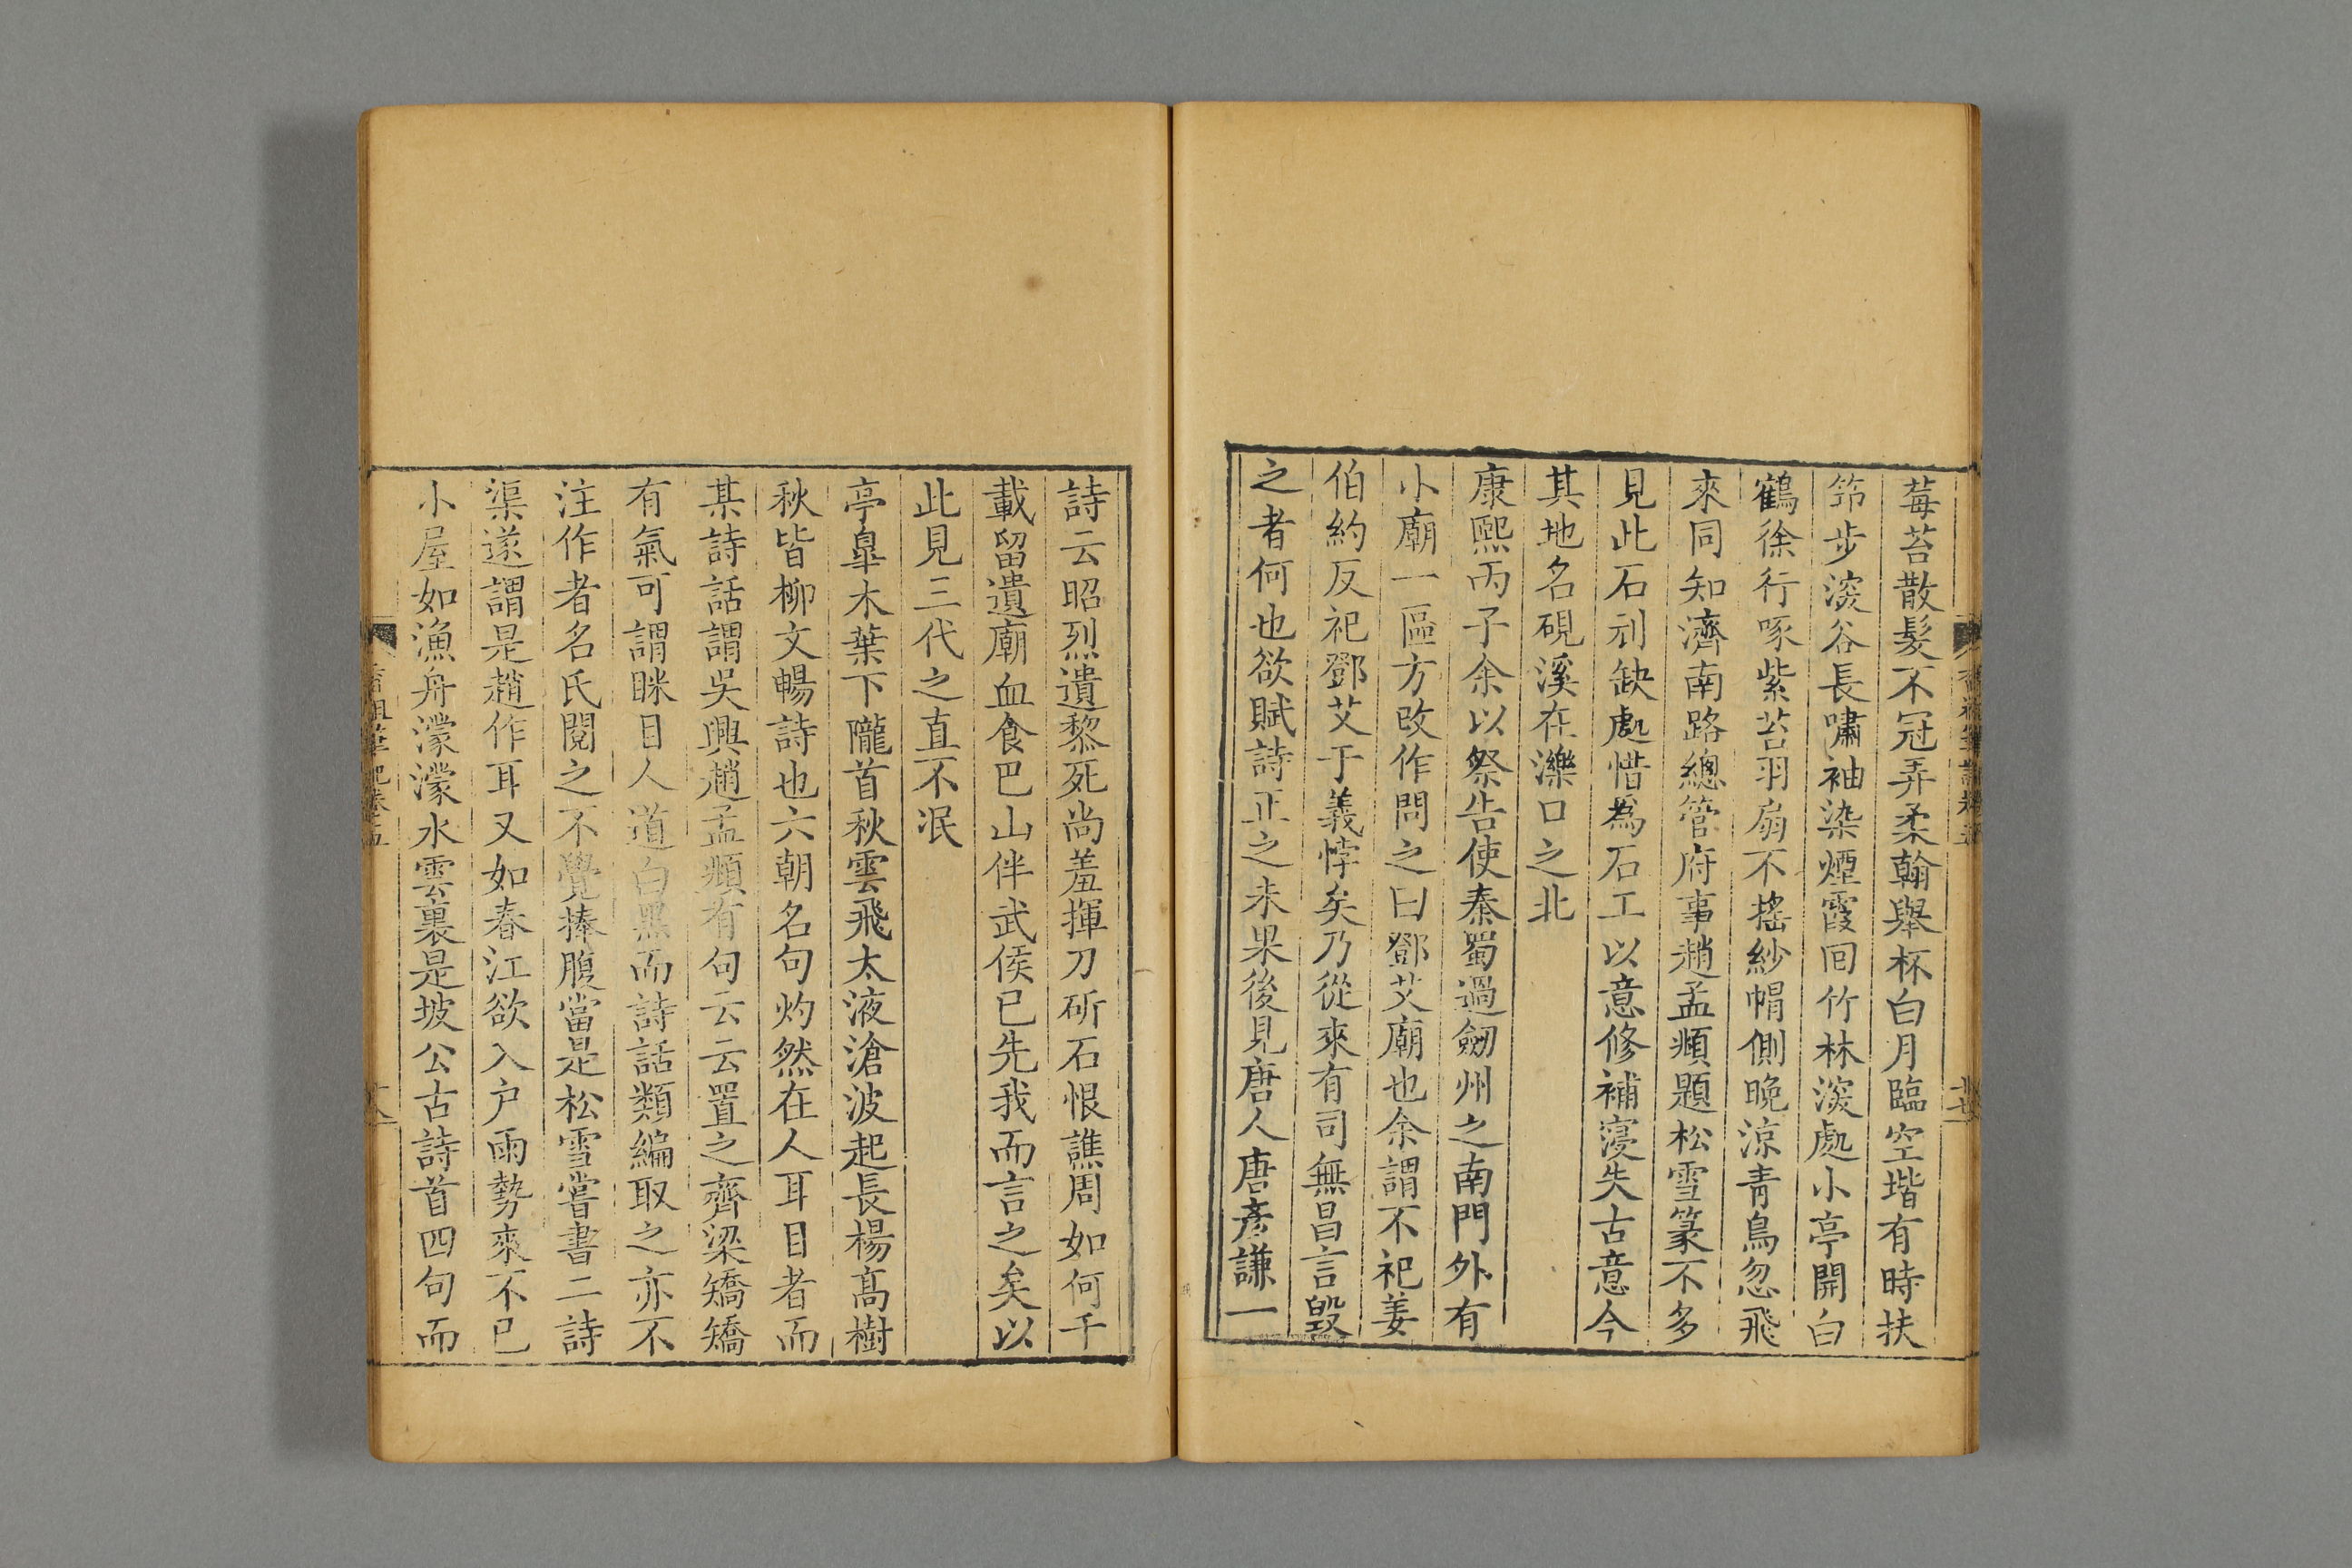 莓苔散髮不冠弄柔翰舉杯白月臨空堦有時扶
筇步深谷長嘯袖染煙霞回竹林深處小亭開白
鶴徐行啄紫苔羽扇不搖紗帽側晚涼青鳥忽飛
來同知濟南路總管府事趙孟頫題松雪篆不多
見此石刓缺處惜為石工以意修補寖失古意今
其地名硯溪在濼口之北
康熙丙子余以祭告使秦蜀過劒州之南門外有
小廟一區方改作問之曰鄧艾廟也余謂不祀姜
伯約反祀鄧艾于義悖矣乃從來有司無昌言毀
之者何也欲賦詩正之未果後見唐人唐彥謙一
詩云昭烈遺黎死尚羞揮刀斫石恨譙周如何千
載留遺廟血食巴山伴武侯已先我而言之矣以
此見三代之直不泯
亭臯木葉下隴首秋雲飛太液滄波起長楊高樹
秋皆柳文暢詩也六朝名句灼然在人耳目者而
某詩話謂吳興趙孟頫有句云云置之齊梁矯矯
有氣可謂眯目人道白黑而詩話類編取之亦不
注作者名氏閱之不覺捧腹當是松雪嘗書二詩
渠遂謂是趙作耳又如春江欲入戶雨勢來不已
小屋如漁舟濛濛水雲裏是坡公古詩首四句而
香祖筆記卷五